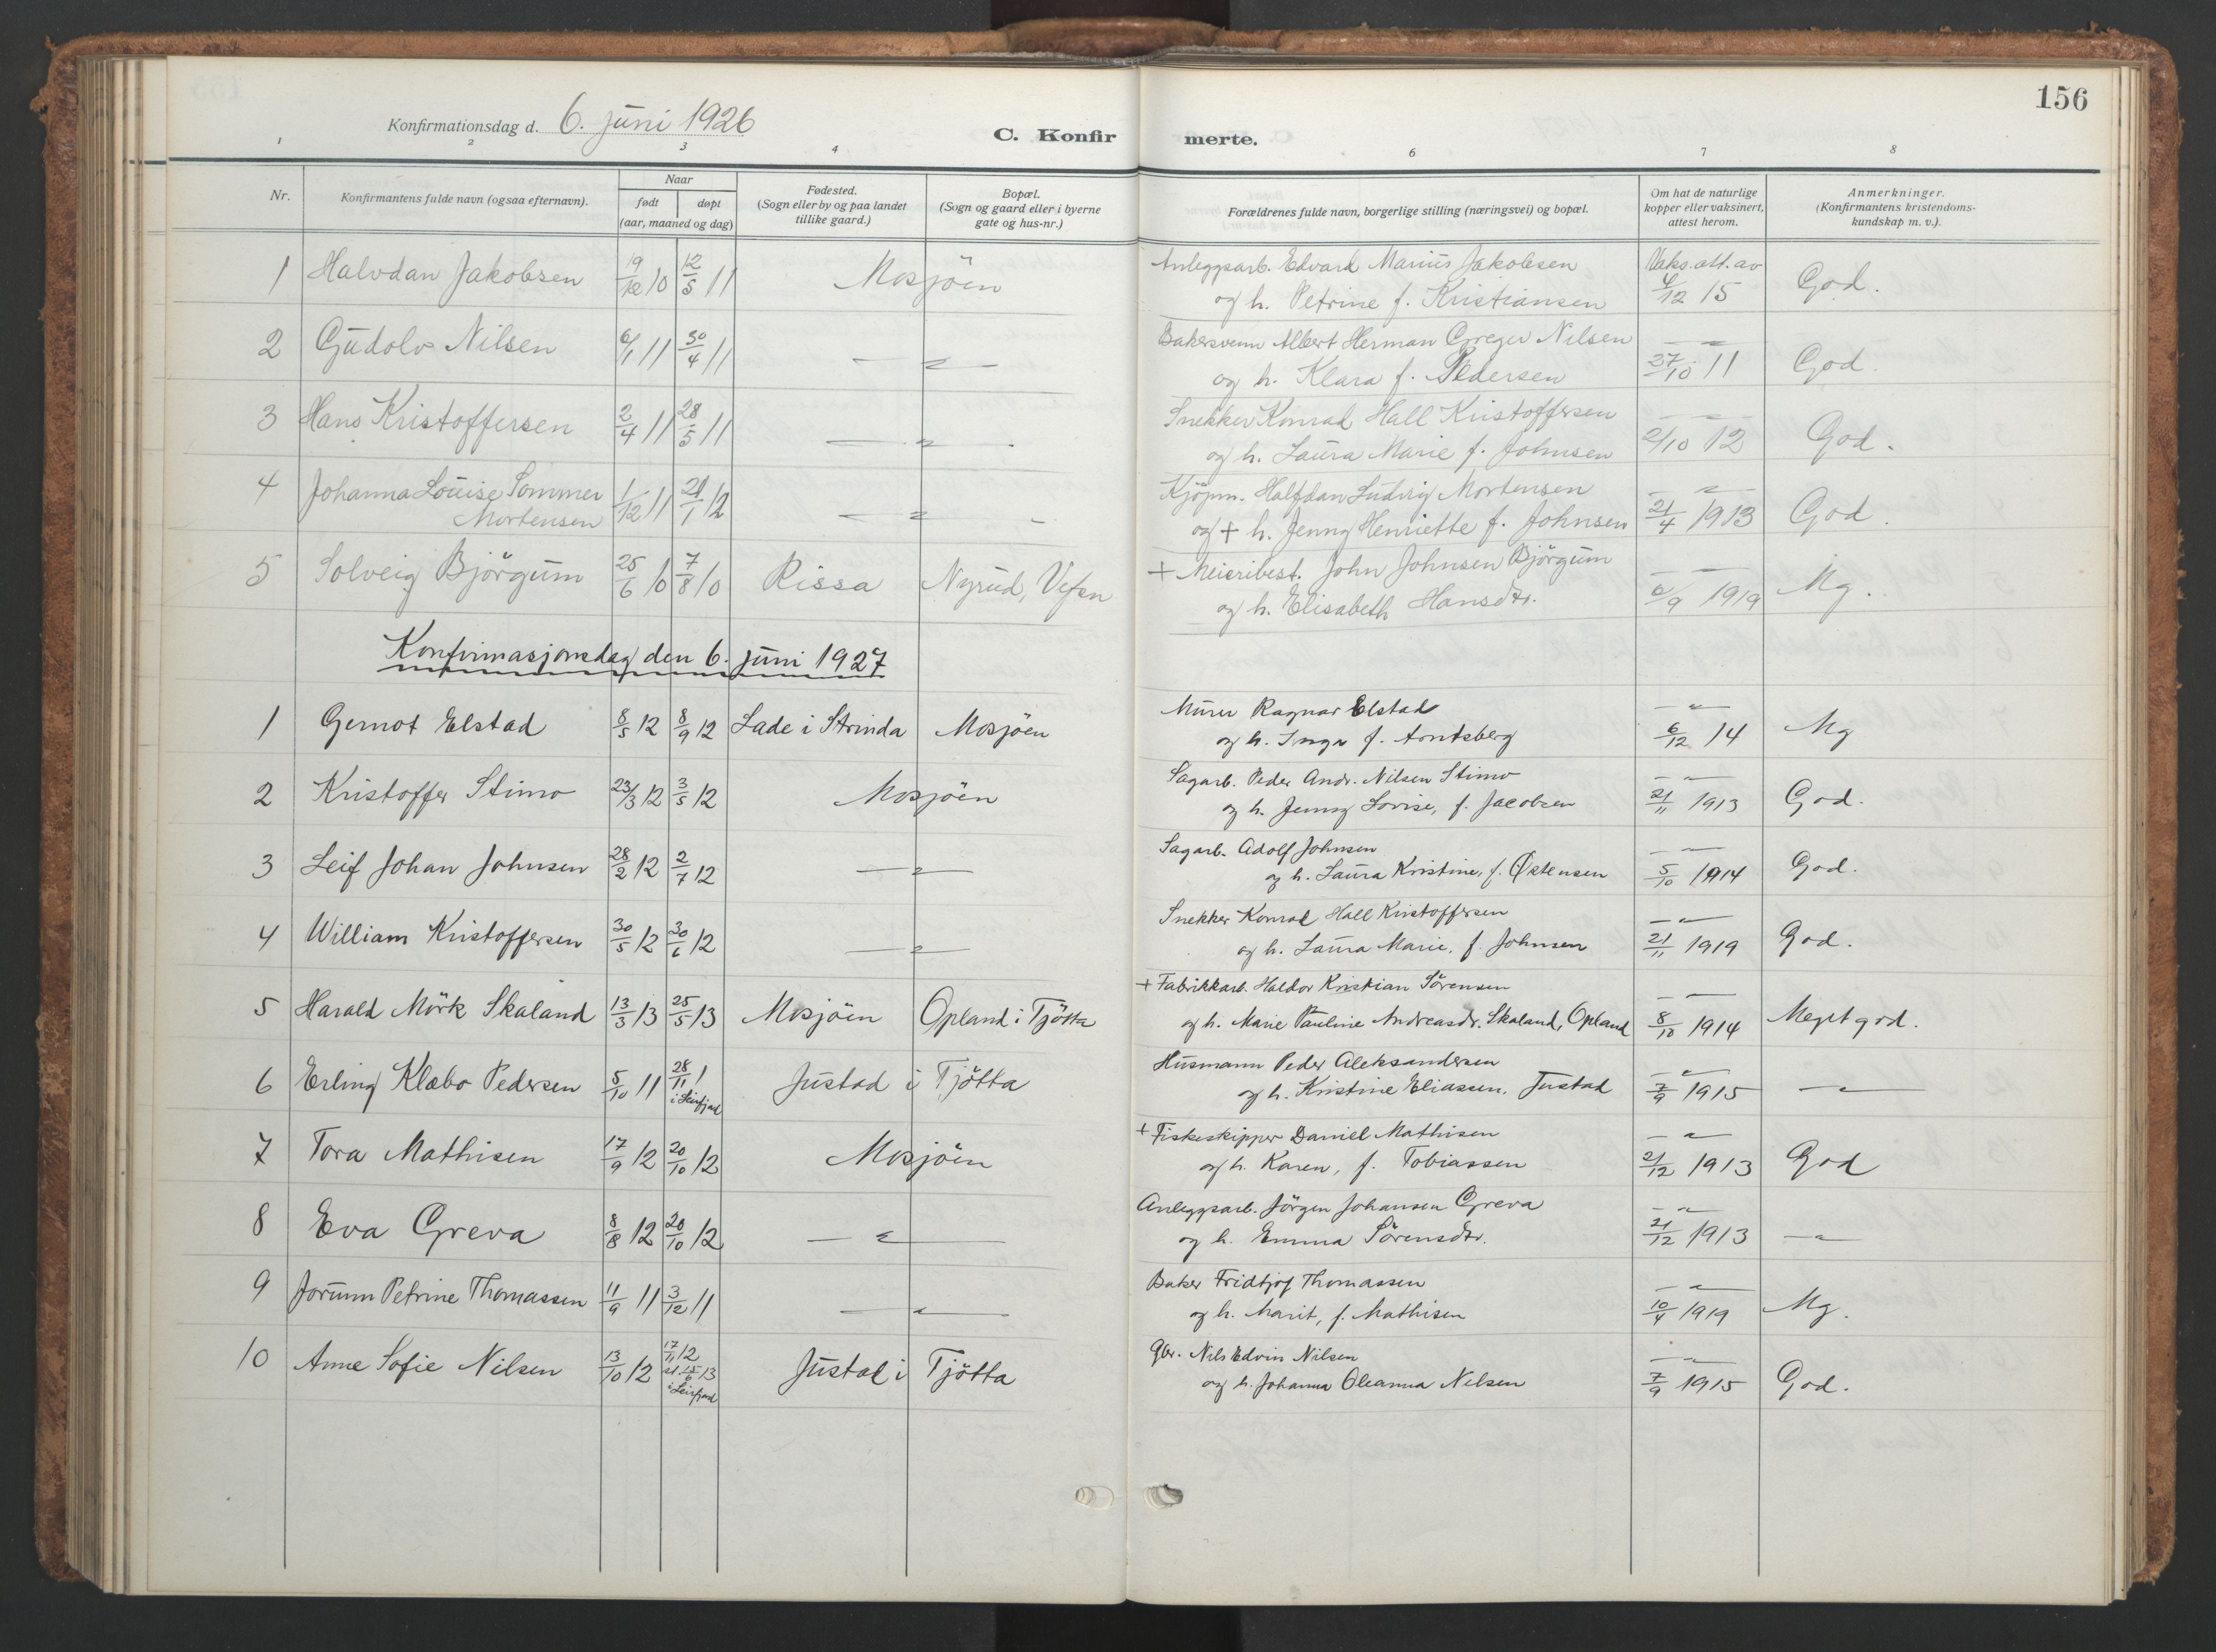 156
Konfirmationsdag d. 6. juni 1926
C. Konfir merte.
1 2 3 4 6 7 8
Nr. Konfirmantens fulde navn (ogsaa efternavn). Naar født døpt (aar, maaned og dag) Fødested. (Sogn eller by og paa landet tillike gaard.) Bopæl. (Sogn og gaard eller i byerne gate og hus-nr.) Forældrenes fulde navn, borgerlige stilling (næringsvei) og bopæl. Om hat de naturlige kopper eller vaksinert, attest herom. Anmerkninger. (Konfirmantens kristendoms-kundskap m. v.).
1 Halvdan Jakobsen 19/12 10 12/5 11 Mosjöen Anleggsarb. Edvard Marius Jakobsen Vaks. att. av God.
og h. Petrine f. Kristiansen 4/12 15
2 Gudolv Nilsen 6/1 11 30/4 11 — " — Bakersvenn Albert Herman Greger Nilsen — " — God.
og h. Klara f. Pedersen 27/10 11
3 Hans Kristoffersen 2/4 11 28/5 11 — " — Snekker Konrad Hall Kristoffersen — " — God.
og h. Laura Marie f. Johnsen 2/10 12
4 Johanna Louise Sommer 1/12 11 21/1 12 — " — Kjöpm. Halfdan Ludvig Mortensen — " — God.
Mortensen og + h. Jenny Henriette f. Johnsen 21/4 1913
5 Solveig Björgum 25/6 10 7/8 10 Rissa Nyrud, Vefsn + Meieribest. John Johnsen Björgum — " — Mg.
og h. Elisabeth Hansdtr. 6/9 1919
Konfirmasjonsdag den 6. juni 1927
1 Gernot Elstad 8/5 12 8/9 12 Lade i Strinda Mosjöen Murer Ragnar Elstad — " — Mg
og h. Inga f. Arntsberg 6/12 14
2 Kristoffer Stimo 23/3 12 3/5 12 Mosjöen Sagarb. Peder Andr. Nilsen Stimo — " — God.
og h. Jenny Lovise, f. Jacobsen 21/11 1913
3 Leif Johan Johnsen 28/2 12 2/7 12 — " — Sagarb. Adolf Johnsen — " — God.
og h. Laura Kristine, f. Østensen 5/10 1914
4 William Kristoffersen 30/5 12 30/6 12 — " — Snekker Konrad Hall Kristoffersen — " — God.
og h. Laura Marie, f. Johnsen 21/11 1919
5 Harald Mörk Skaland 13/3 13 25/5 13 Mosjöen Opland i Tjötta + Fabrikkarb. Haldor Kristian Sörensen — " — Meget god.
og h. Marie Pauline Andreasdr. Skaland, Opland 8/10 1914
6 Erling Klæbo Pedersen 5/10 11 28/11 1 i Leirfjord Justad i Tjötta Husmann Peder Aleksandersen — " — — " —
og h. Kristine Eliassen. Justad 7/9 1915
7 Tora Mathisen 17/9 12 20/10 12 Mosjöen + Fiskeskipper Daniel Mathisen — " — God
og h. Karen, f. Tobiassen 21/12 1913
8 Eva Greva 8/8 12 20/10 12 — " — Anleggsarb. Jörgen Johansen Greva — " — — " —
og h. Emma Sörensdtr. 21/12 1913
9 Jorunn Petrine Thomassen 11/9 11 3/12 11 — " — Baker Fridtjof Thomassen — " — Mg.
og h. Marit, f. Mathisen 10/4 1919
10 Anne Sofie Nilsen 13/10 12 17/11 12 st 15/6 13 i Leirfjord Justad i Tjötta Gbr. Nils Edvin Nilsen — " — God.
og h. Johanna Oleanna Nilsen 7/9 1915